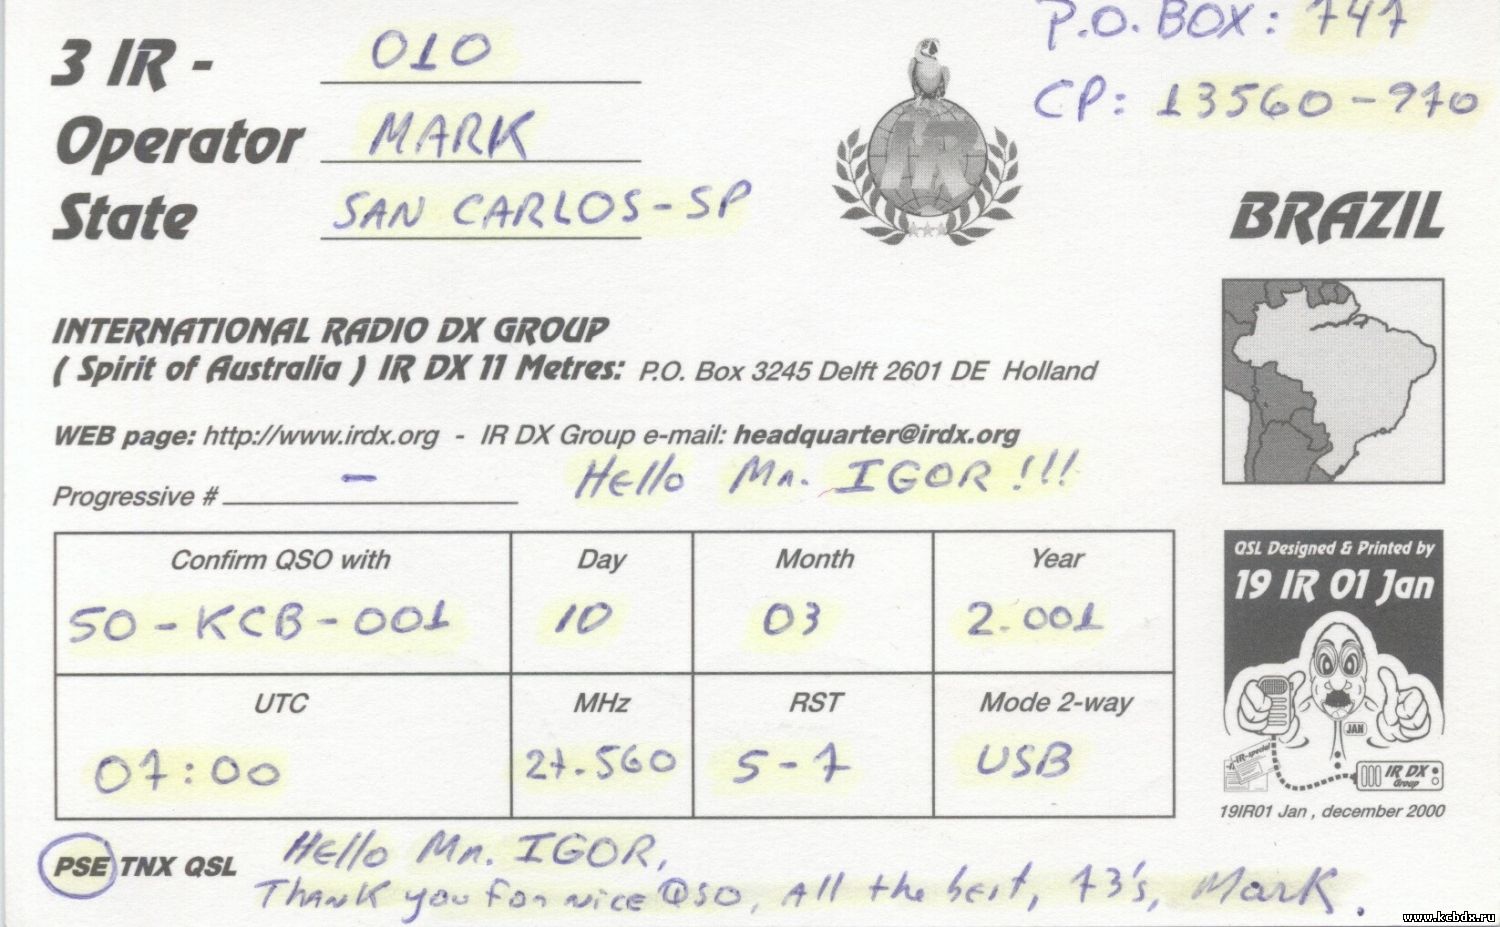 P.O. BOX: 747
3 IR - 010
CP: 13560-970
Operator MARK
State SAN CARLOS-SP
IR
BRAZIL
INTERNATIONAL RADIO DX GROUP
( Spirit of Australia ) IR DX 11 Metres: P.O. Box 3245 Delft 2601 DE Holland
WEB page: http://www.irdx.org - IR DX Group e-mail: headquarter@irdx.org
Progressive # -
Hello Mr. IGOR!!!
Confirm QSO with Day Month Year
50-KCB-001 10 03 2.001
UTC MHz RST Mode 2-way
07:00 27.560 5-7 USB
QSL Designed & Printed by
19 IR 01 Jan
JAN
IR-special
IR DX
Group
19IR01 Jan , december 2000
PSE TNX QSL
Hello Mr. IGOR,
Thank you for nice QSO, All the best, 73's, Mark.
www.kcbdx.ru